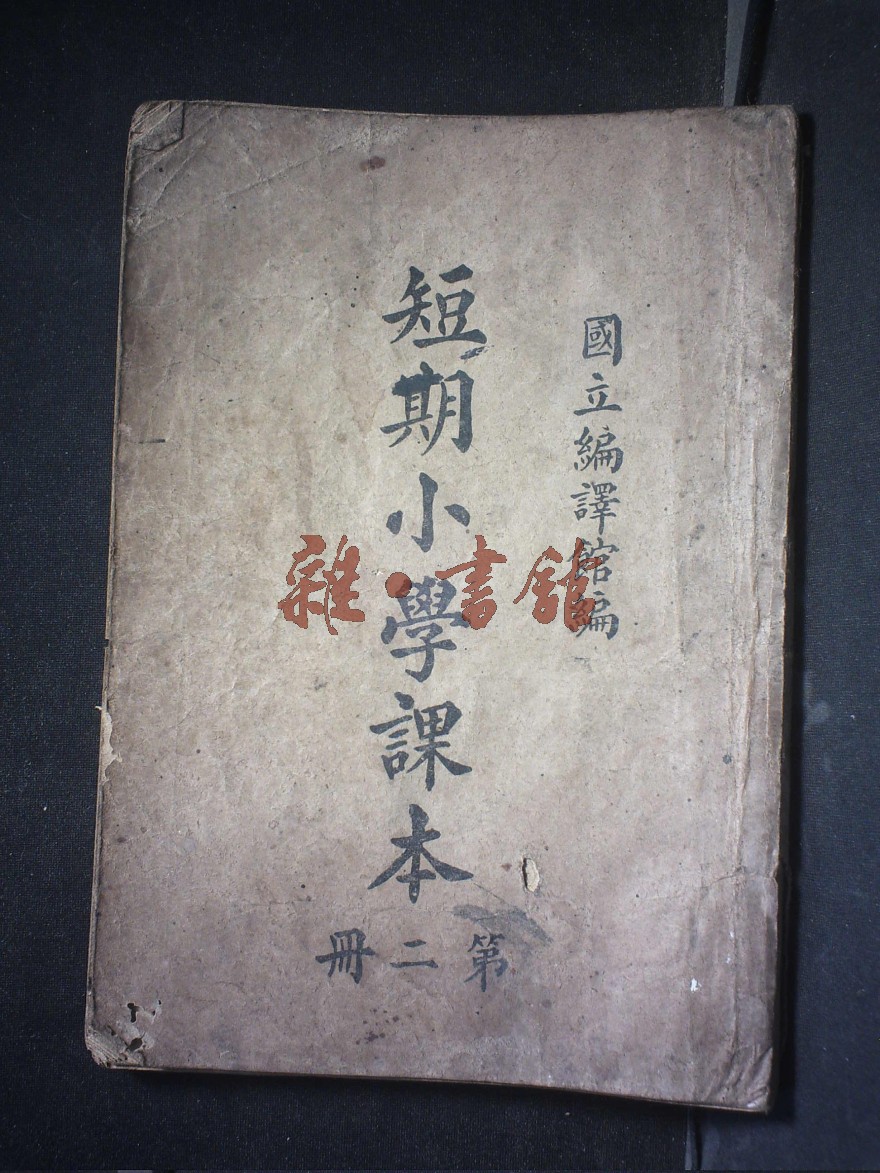 國立編譯館編
短期小學課本
第二冊
雜·書館